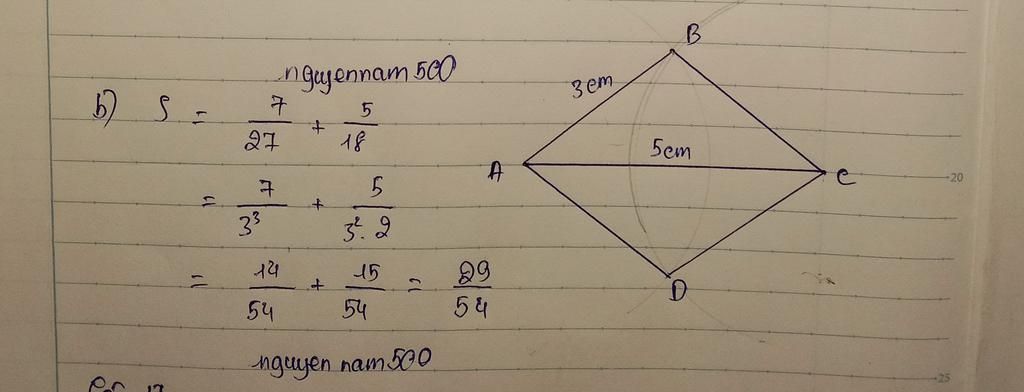 nguyennam500
b) S = 7/27 + 5/18
= 7/3³ + 5/3².2
= 14/54 + 15/54 = 29/54
nguyen nam500
B
3cm
A
5cm
C
D
20
25